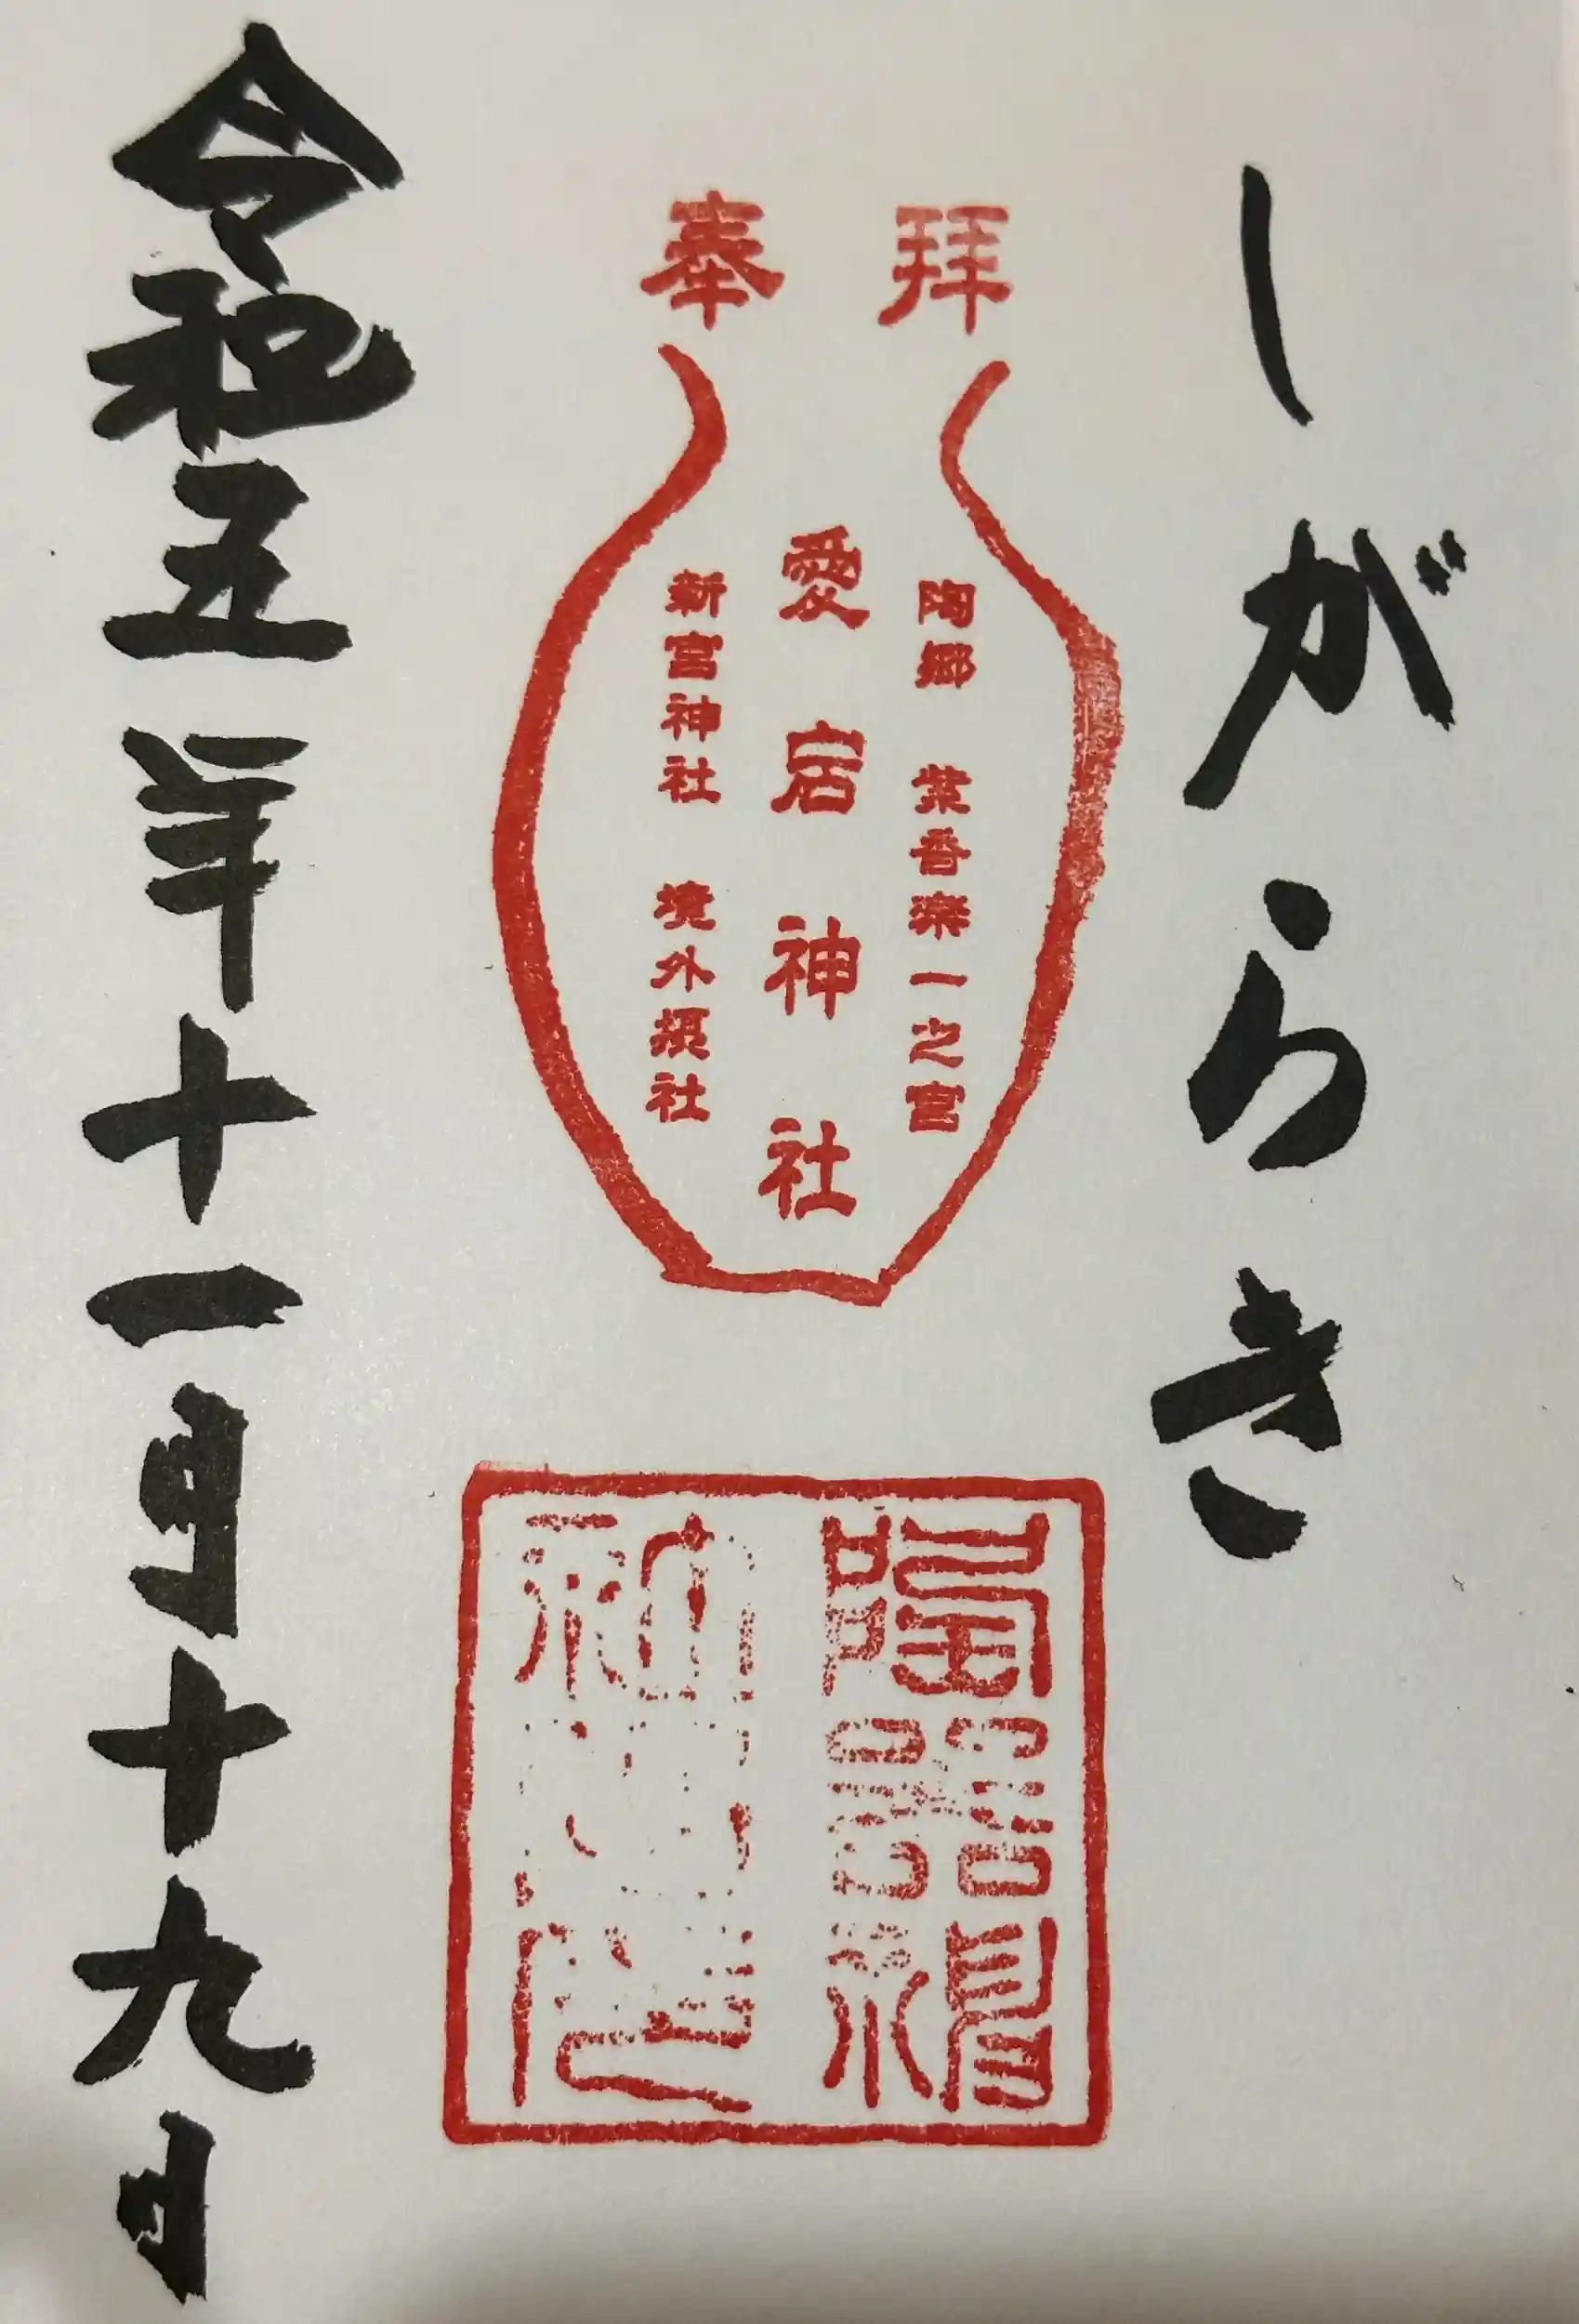 しがらき
奉拝
陶郷 紫香楽一之宮
愛宕神社
新宮神社 境外摂社
陶器
令和五年十一月十九日